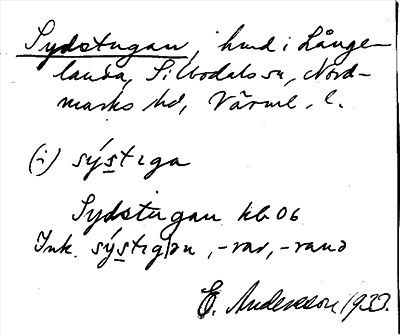 Sydstugan, hmd i Långe-
landa, Silbodals sn, Nord-
marks hd, Värml. l.
(i) sýstıga
Sydstugan kb 06
Ink. sýstıgən, -rar, -rana
E. Andersson 1933.